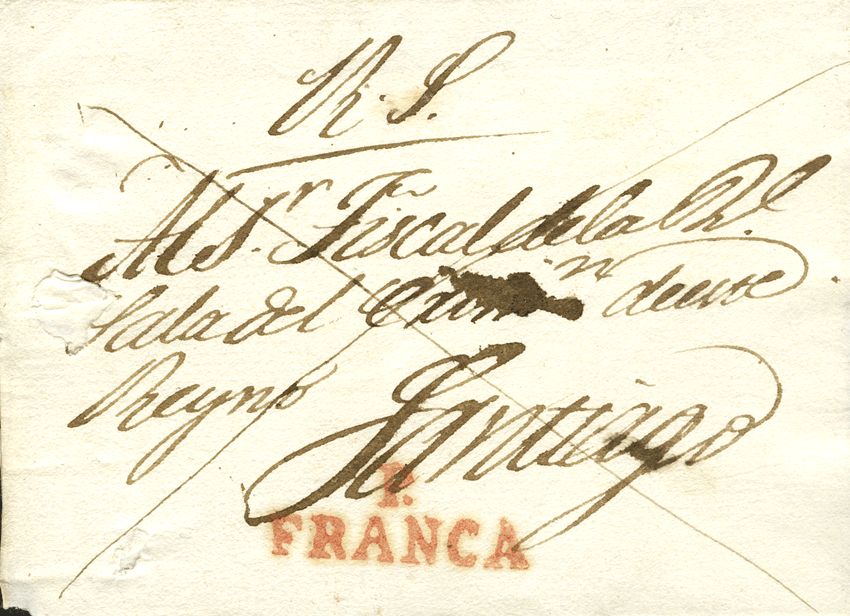 R. S.
Al S.r Fiscal de la Rl.
Sala del Crimn de este
Reyno
Santiago
P.
FRANCA